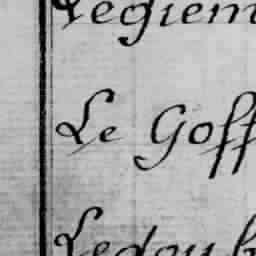 Legiem
Le Goff
Ledoub